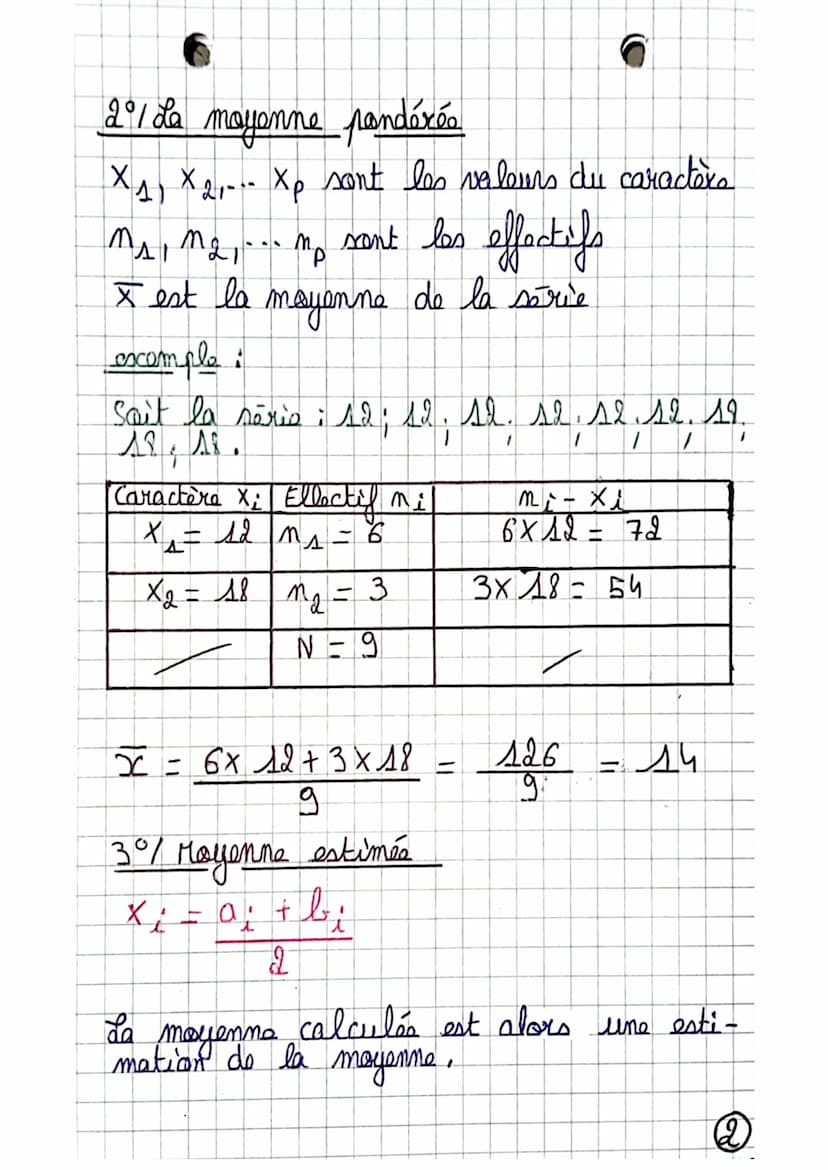 2°/ La moyenne pondérée
x1, x2,... xp sont les valeurs du caractère
n1, n2,... np sont les effectifs
x̄ est la moyenne de la série
exemple :
Soit la série : 12 ; 12 ; 12 ; 12 ; 12 ; 12 ; 18 ;
18 ; 18.
Caractère xi | Effectif ni | ni - xi
x1 = 12 | n1 = 6 | 6 x 12 = 72
x2 = 18 | n2 = 3 | 3 x 18 = 54
N = 9
x̄ = (6 x 12 + 3 x 18) / 9 = 126 / 9 = 14
3°/ Moyenne estimée
xi = (ai + bi) / 2
La moyenne calculée est alors une esti-
mation de la moyenne.
2